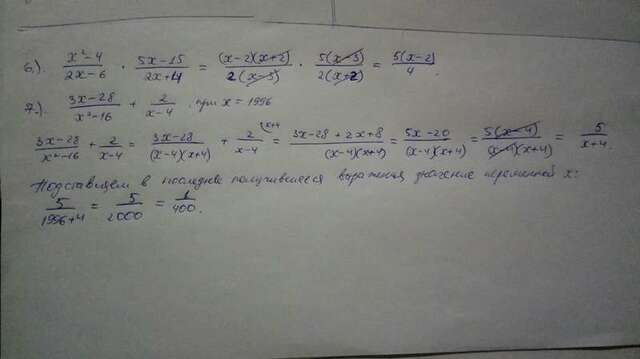 6.). (x²-4)/(2x-6) · (5x-15)/(2x+4) = ((x-2)(x+2))/(2(x-3)) · (5(x-3))/(2(x+2)) = (5(x-2))/4.
7.). (3x-28)/(x²-16) + 2/(x-4), при x = 1996
(3x-28)/(x²-16) + 2/(x-4) = (3x-28)/((x-4)(x+4)) + 2/(x-4) (x+4 = (3x-28+2x+8)/((x-4)(x+4)) = (5x-20)/((x-4)(x+4)) = (5(x-4))/((x-4)(x+4)) = 5/(x+4).
Подставляем в последнее получившееся выражение, значение переменной x:
5/(1996+4) = 5/2000 = 1/400.